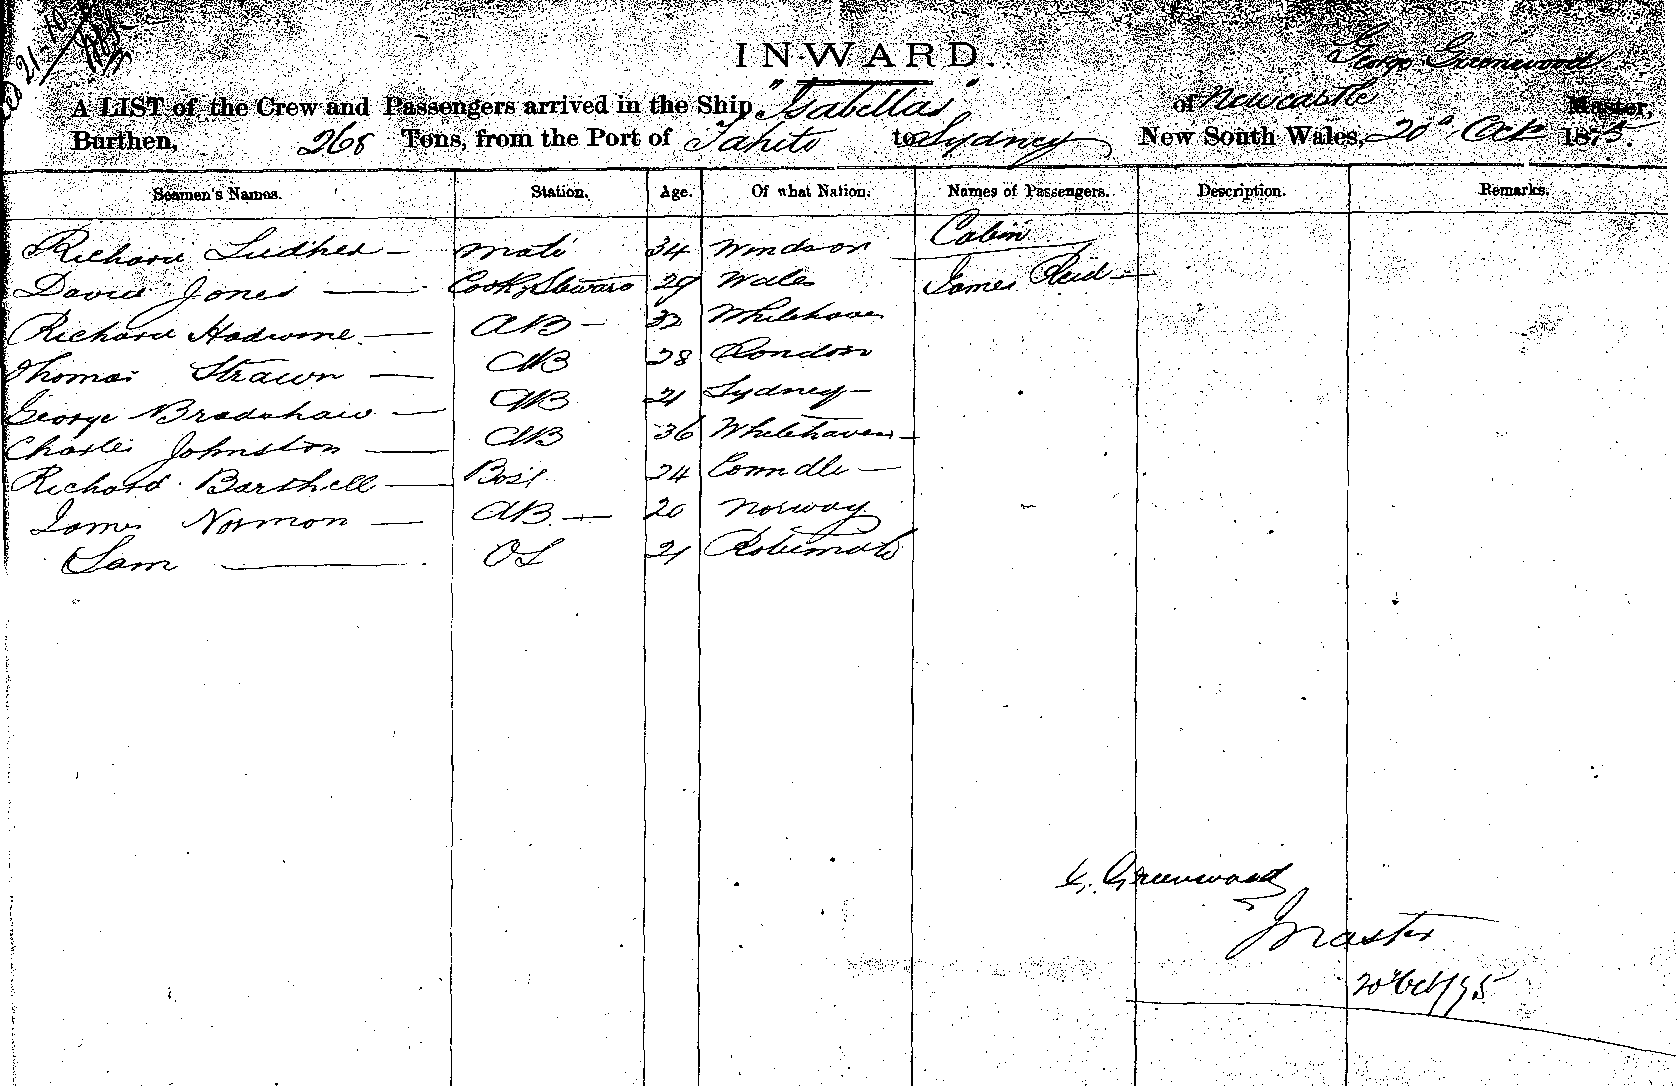 INWARD.
George Greenwood
A LIST of the Crew and Passengers arrived in the Ship "Isabellas" of Newcastle Master,
Burthen, 268 Tons, from the Port of Tahiti to Sydney New South Wales, 20th Oct 1875.
Seamen's Names. Station. Age. Of what Nation. Names of Passengers. Description. Remarks.
Cabin
Richard — Mate 34 Windsor
David Jones — Cook & Steward 29 Wales James Reid —
Richard — AB — 32 Whitehaven
Thomas Strawn — AB 28 London
George Bradshaw — AB 21 Sydney —
Charles Johnston — AB 36 Whitehaven —
Richard Barthell — 24 —
James Norman — AB — 20 Norway
Sam — OS 21
G. Greenwood
Master
20 Oct/75